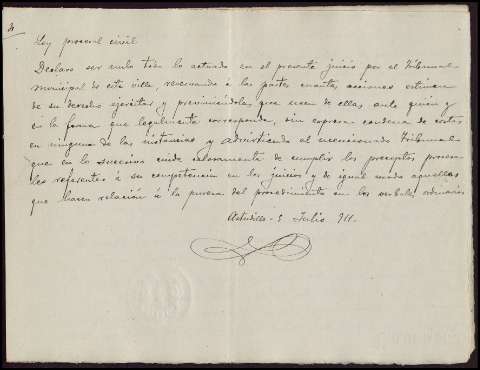 Ley procesal civil
Declaro ser nulo todo lo actuado en el presente juicio por el Tribunal
municipal de esta villa, reservando á las partes cuantas acciones estimen
de su derecho ejercitar y previniéndoles que usen de ellas ante quien y
en la forma que legalmente corresponda, sin expresa condena de costas
en ninguna de las instancias y advirtiendo al mencionado Tribunal
que en lo sucesivo cuide celosamente de cumplir los preceptos procesa-
les referentes á su competencia en los juicios y de igual modo aquellos
que hacen relación á la pureza del procedimiento en los verbales ordinarios
Astudillo - 5 Julio 911.